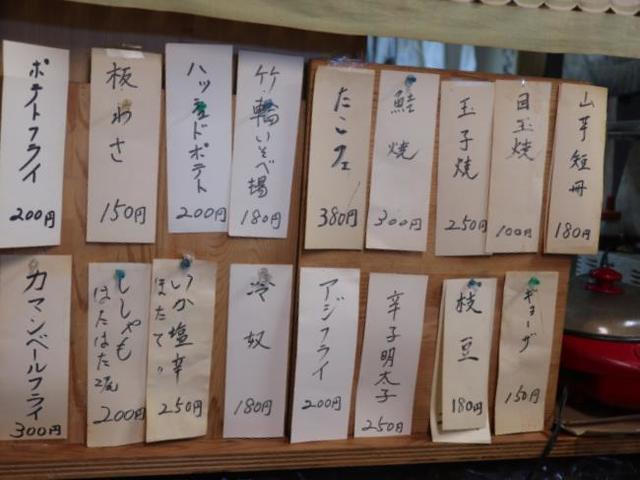 山芋短冊
180円
目玉焼
100円
玉子焼
250円
鮭焼
300円
たこフェ
380円
竹輪いそべ揚
180円
ハッシュドポテト
200円
板わさ
150円
ポテトフライ
200円
ギョーザ
150円
枝豆
180円
辛子明太子
250円
アジフライ
200円
冷奴
180円
いか塩辛
ほたて〃
250円
ししゃも
はたはた2尾
200円
カマンベールフライ
300円